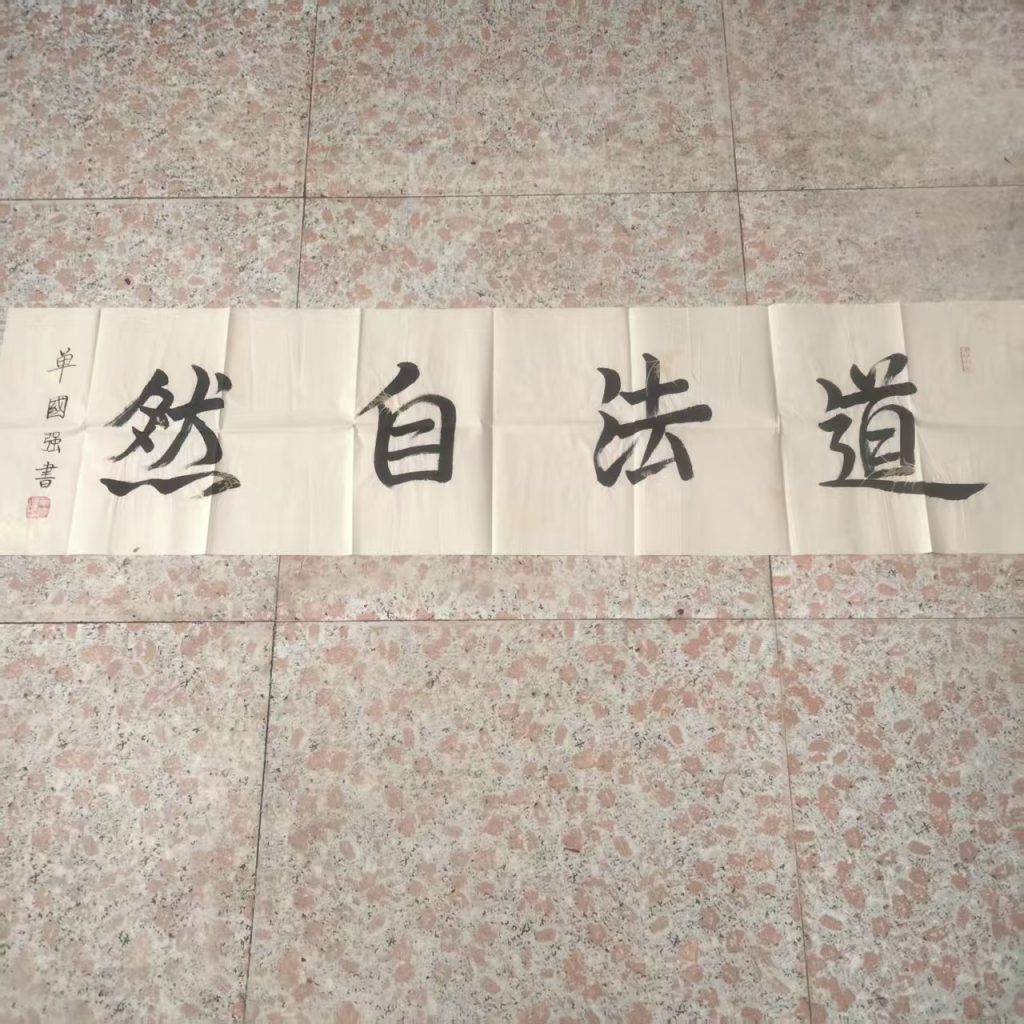 道法自然
単國强書